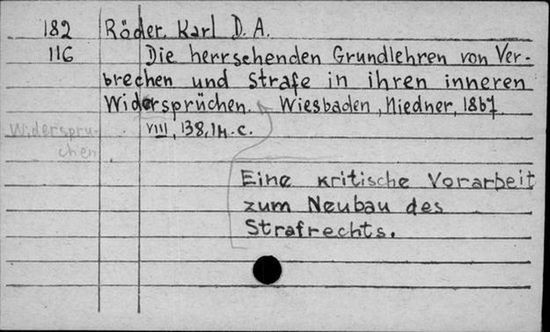 182 Röder, Karl D. A.
116 Die herrschenden Grundlehren von Ver-
brechen und Strafe in ihren inneren
Widersprüchen. Wiesbaden, Niedner, 1867.
Widersprü- VIII, 138, 1H. c.
chen
Eine kritische Vorarbeit
zum Neubau des
Strafrechts.